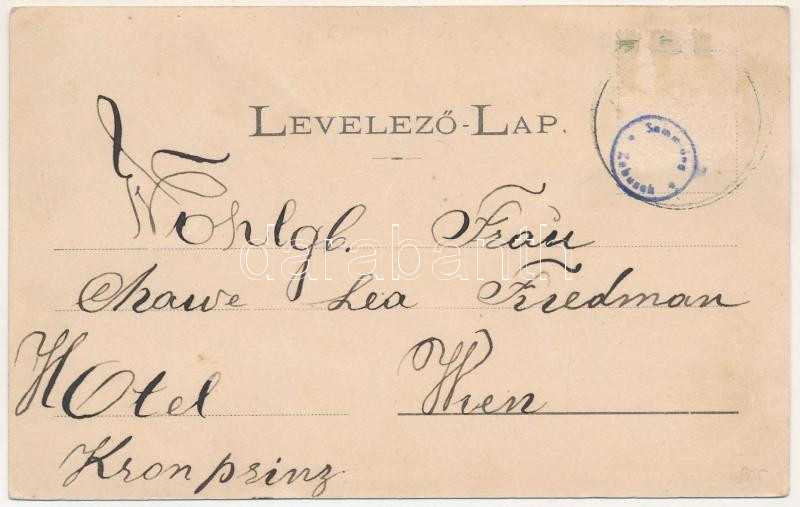 LEVELEZŐ-LAP.
Sammlung
Zabusch
Wohlgb. Frau
Chawe Lea Friedman
Hotel Wien
Kronprinz
darabanth